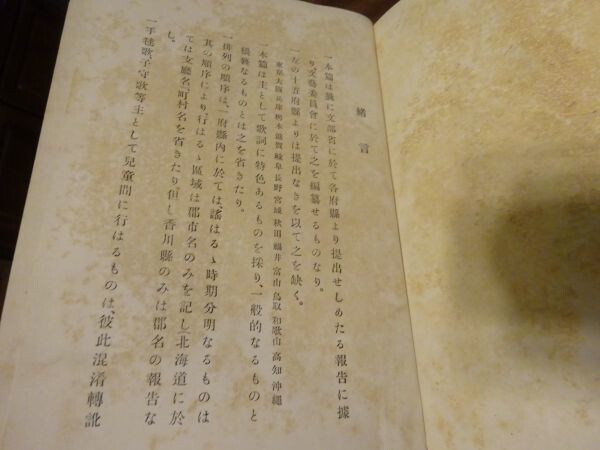 緒言
一本篇は曩に文部省に於て各府縣より提出せしめたる報告に據
り、文藝委員會に於て之を編纂せるものなり。
一左の十五府縣よりは提出なきを以て之を缺く。
東京 大阪 兵庫 栃木 滋賀 岐阜 長野 宮城 秋田 福井 富山 鳥取 和歌山 高知 沖繩
一本篇は主として歌詞に特色あるものを採り、一般的なるものと
猥褻なるものとは之を省きたり。
一排列の順序は、一府縣內に於ては、謠はるゝ時期分明なるものは
其の順序により、行はるゝ區域は郡市名のみを記し(北海道に於
ては支廳名)、町村名を省きたり、但し香川縣のみは郡名の報告な
し。
一手毬歌子守歌等主として兒童間に行はるものは、彼此混淆轉訛